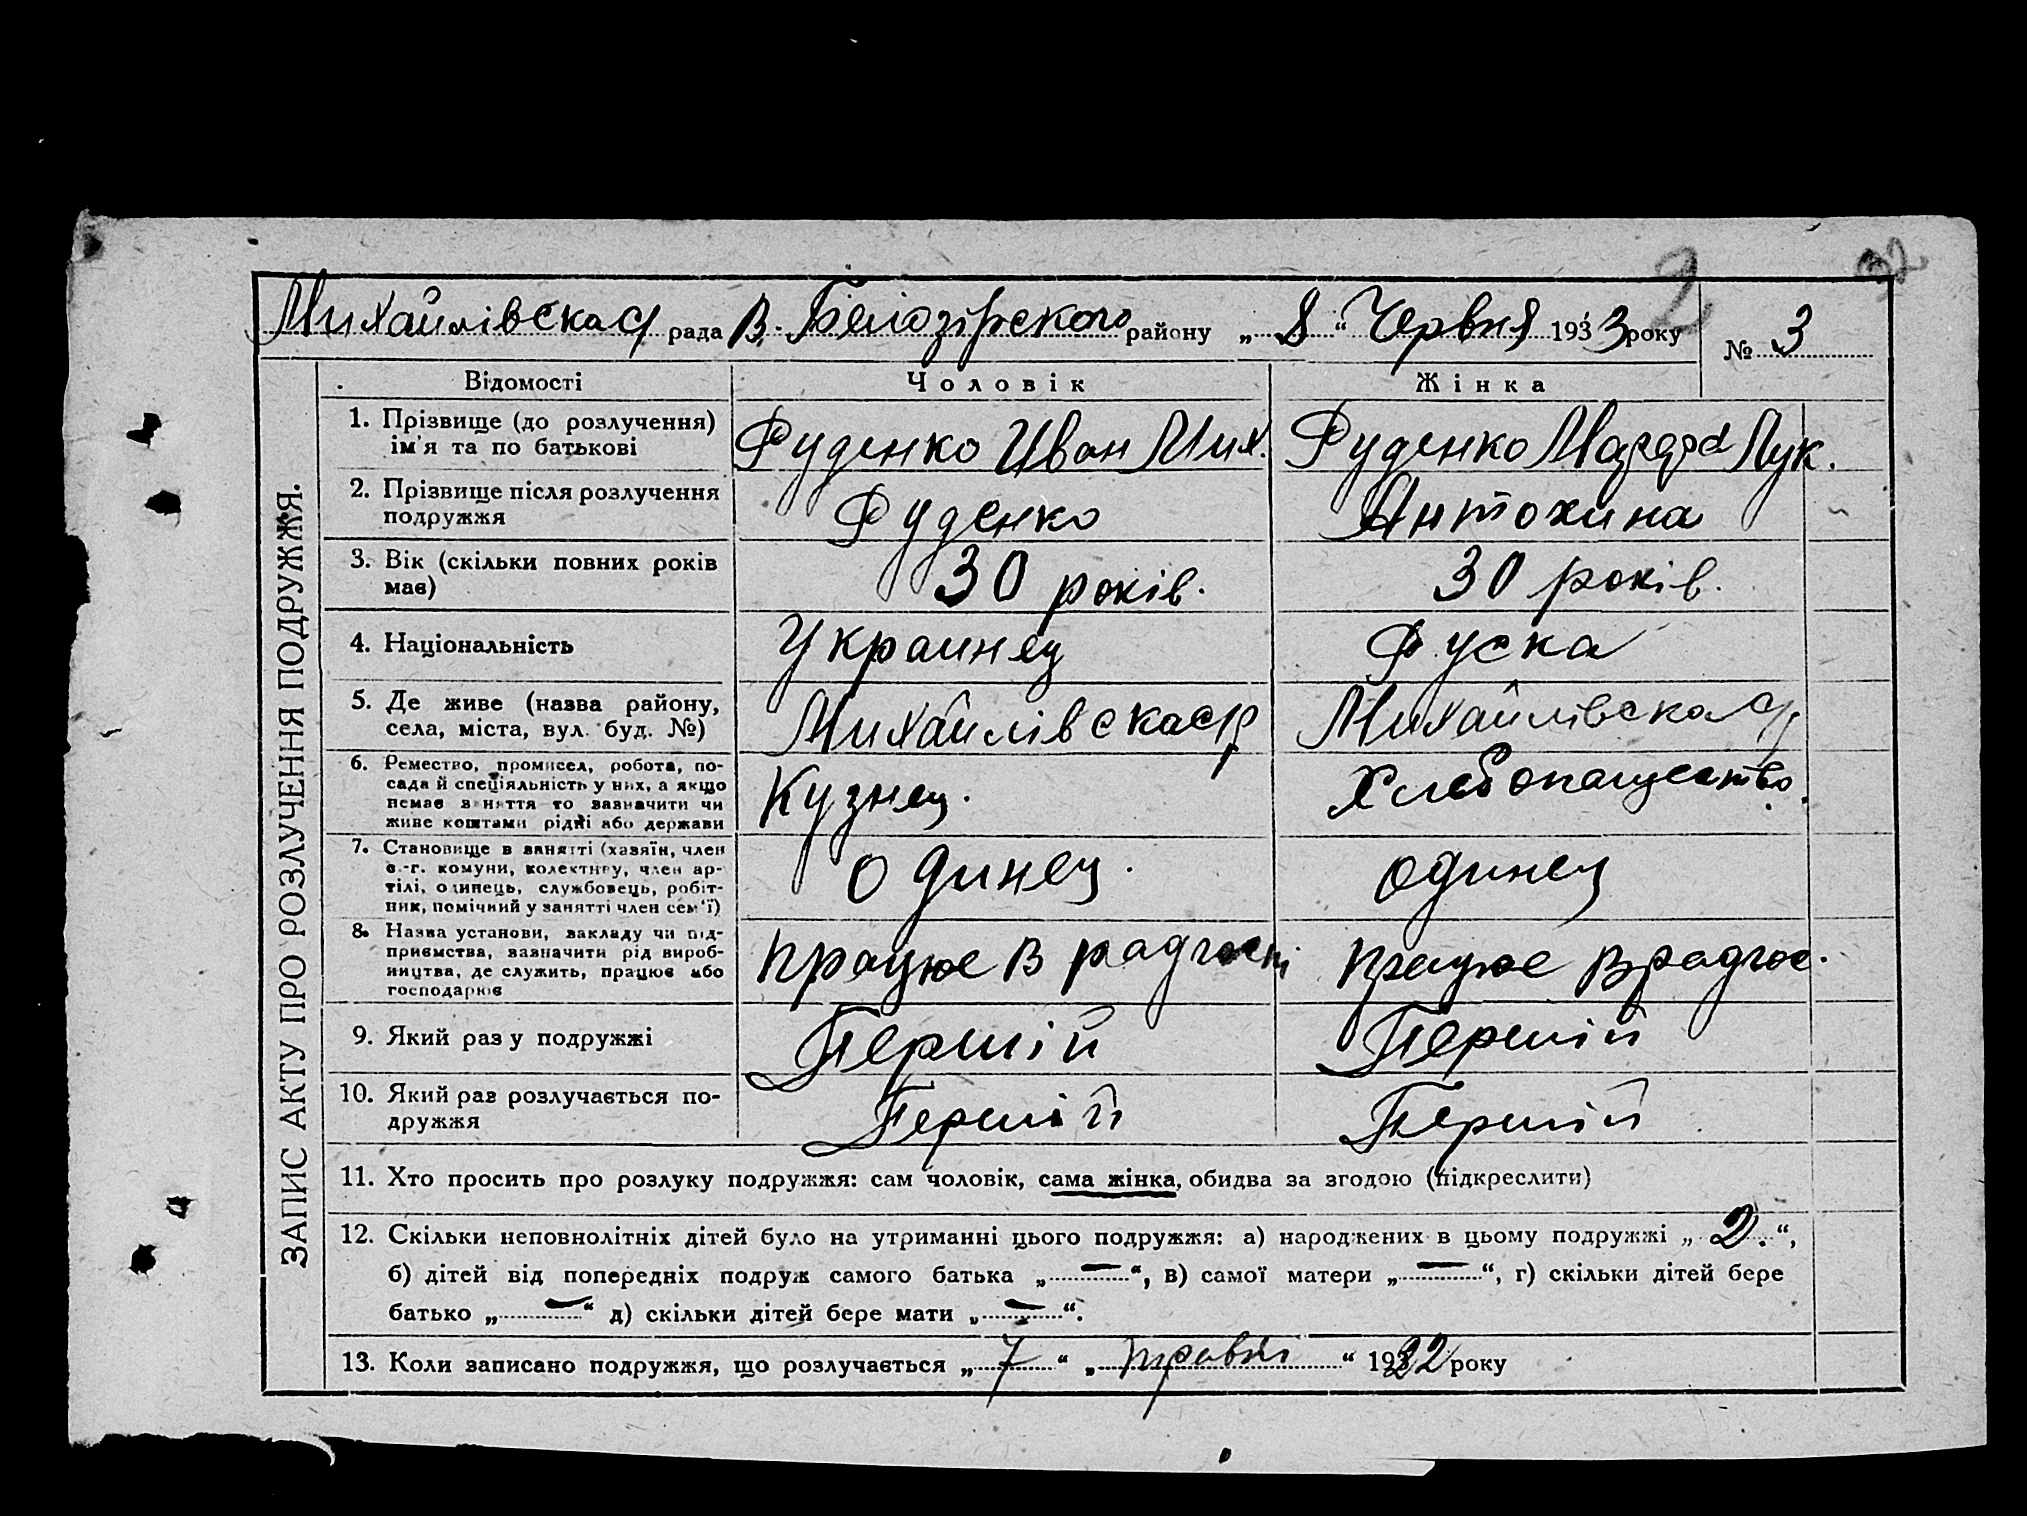 2
32
Михайлівская рада В. Білозірского району „ 8 “ Червня 1933 року № 3
ЗАПИС АКТУ ПРО РОЗЛУЧЕННЯ ПОДРУЖЖЯ.
Відомості Чоловік Жінка
1. Прізвище (до розлучення)
ім'я та по батькові
Руденко Иван Мих. Руденко Лук.
2. Прізвище після розлучення
подружжя
Руденко Антохина
3. Вік (скільки повних років
має)
30 років. 30 років.
4. Національність Украинец Руска
5. Де живе (назва району,
села, міста, вул. буд. №)
Михайлівска с/р Михайлівска с/р
6. Ремество, промисел, робота, по-
сада й спеціяльність у них, а якщо
немає заняття то зазначити чи
живе коштами рідні або держави
Кузнец. Хлебопашество.
7. Становище в занятті (хазяїн, член
с.-г. комуни, колективу, член ар-
тілі, одинець, службовець, робіт-
ник, помічний у занятті член сем'ї)
одинец. одинец
8. Назва установи, закладу чи під-
приємства, зазначити рід вироб-
ництва, де служить, працює або
господарює
працює в радгості працює в радгос.
9. Який раз у подружжі Першій Першій
10. Який раз розлучається по-
дружжя
Першій Першій
11. Хто просить про розлуку подружжя: сам чоловік, сама жінка, обидва за згодою (підкреслити)
12. Скільки неповнолітніх дітей було на утриманні цього подружжя: а) народжених в цьому подружжі „ 2. “,
б) дітей від попередніх подруж самого батька „ — “, в) самої матери „ — “, г) скільки дітей бере
батько „ — “ д) скільки дітей бере мати „ — “.
13. Коли записано подружжя, що розлучається „ 7 “ „ травня “ 1922 року